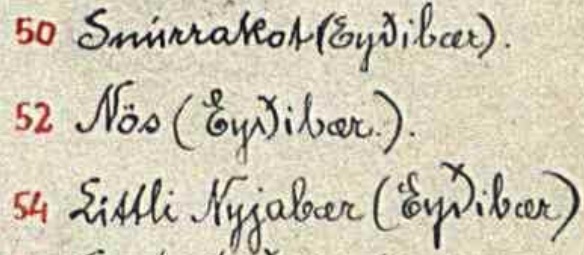 50 Snúrrakot (Eyðibær).
52 Nös (Eyðibær.).
54 Littli Nyjabær (Eyðibær)